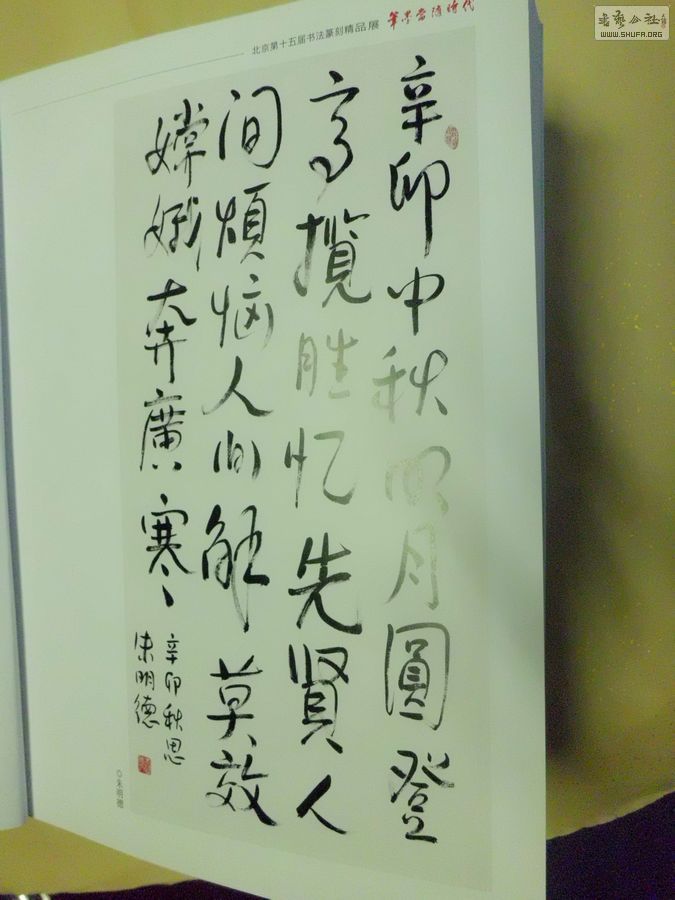 北京第十五届书法篆刻精品展 笔墨当随时代
書藝公社
WWW.SHUFA.ORG
辛卯中秋明月圓登
高揽胜忆先贤人
间烦恼人间解莫效
嫦娥奔廣寒
辛卯秋思
朱明德
◎朱明德